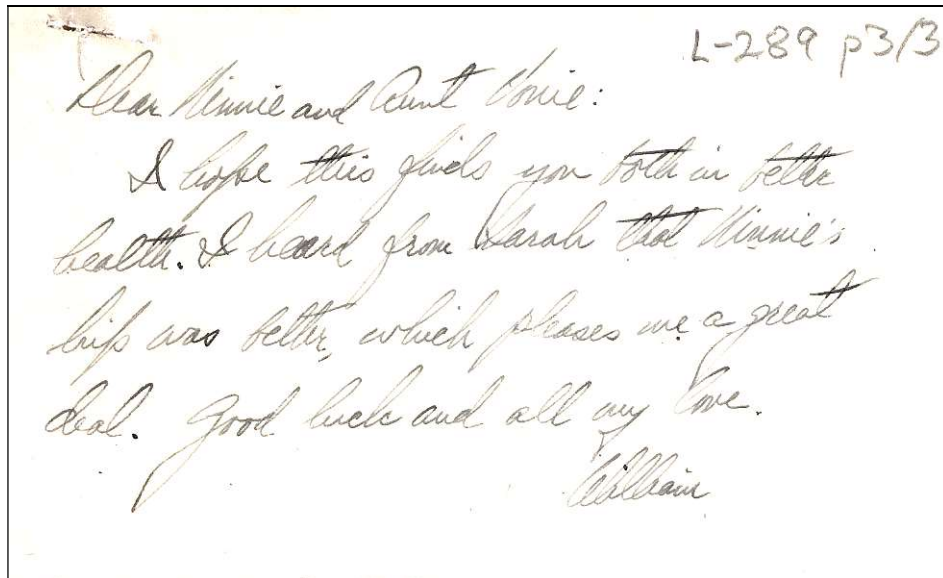 L-289 p3/3
Dear Minnie and Aunt Vonie:
I hope this finds you both in better
health. I heard from Sarah that Minnie's
hip was better, which pleases me a great
deal. Good luck and all my love.
William